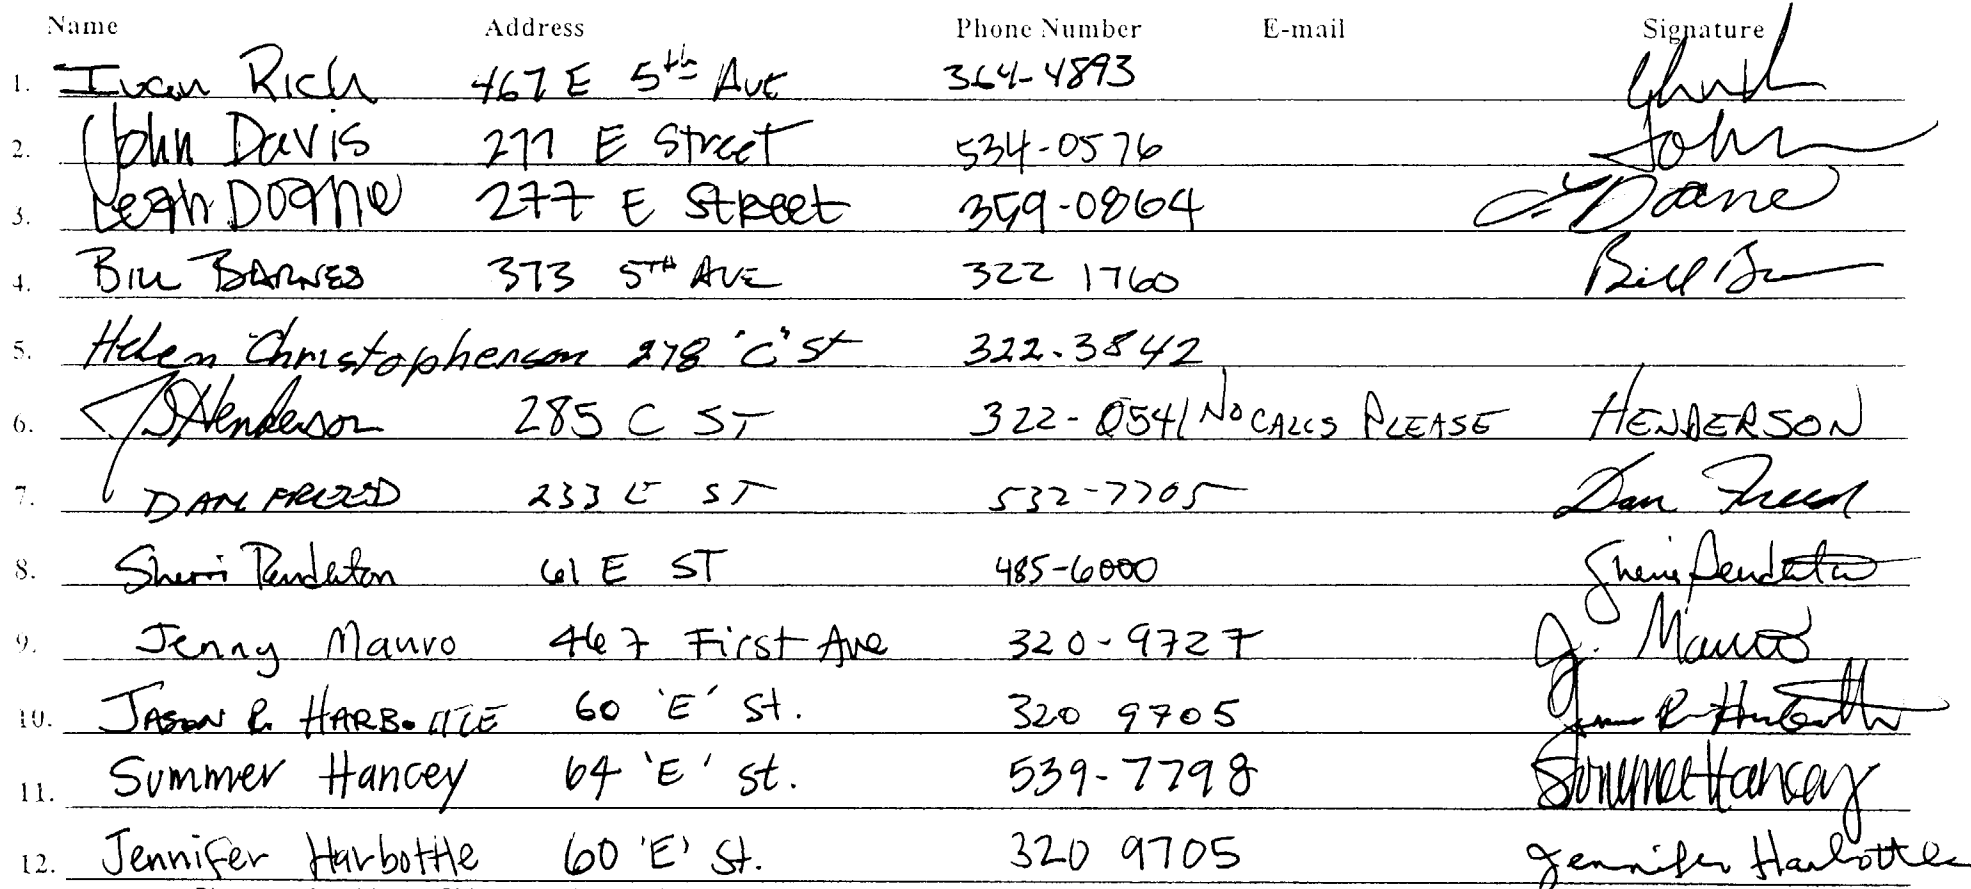 Name Address Phone Number E-mail Signature
1. Ivan Rich 467 E 5th Ave 364-4893
2. John Davis 277 E Street 534-0576 John
3. Leigh Doane 277 E Street 359-0864 L Doane
4. BILL BARNES 373 5TH AVE 322 1760 Bill
5. Helen Christopherson 278 "C" St 322-3842
6. JD Henderson 285 C ST 322-0541 NO CALLS PLEASE HENDERSON
7. DAN FREED 233 E ST 532-7705 Dan Freed
8. Sherri Pendleton 61 E ST 485-6000 Sherri Pendleton
9. Jenny Mauro 467 First Ave 320-9727 J. Mauro
10. JASON R. HARBOTTLE 60 'E' St. 320 9705 Jason R Harbottle
11. Summer Hancey 64 'E' St. 539-7798 Summer Hancey
12. Jennifer Harbottle 60 'E' St. 320 9705 Jennifer Harbottle